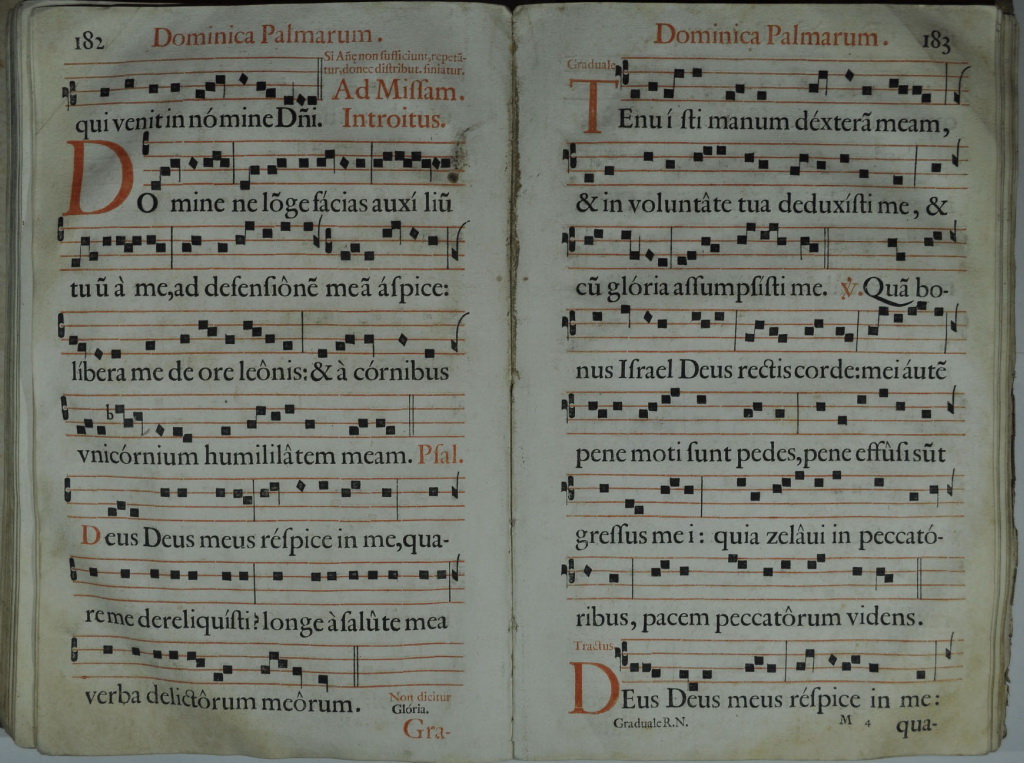 182
Dominica Palmarum.
Si Añe non sufficiunt, repetā-
tur, donec distribut. finiatur.
Ad Miſſam.
qui venit in nómine Dñi. Introitus.
DO mine ne lōge fácias auxí liū
tu ũ à me,ad defenſiônē meā áſpice:
líbera me de ore leônis:& à córnibus
vnicórnium humililâtem meam. Pſal.
Deus Deus meus réſpice in me,qua-
re me dereliquíſti? longe à ſalûte mea
verba delictôrum meôrum.
Non dicitur
Glória.
Gra-
Dominica Palmarum.
183
Graduale
TEnuí ſti manum déxterā meam,
& in voluntâte tua deduxíſti me, &
cū glória aſſumpſiſti me. ℣. Quā bo-
nus Iſrael Deus rectis corde:mei áutē
pene moti ſunt pedes,pene effûſi sūt
greſſus mei: quia zelâui in peccató-
ribus, pacem peccatôrum videns.
Tractus
DEus Deus meus réſpice in me:
Graduale R.N.
M 4
qua-